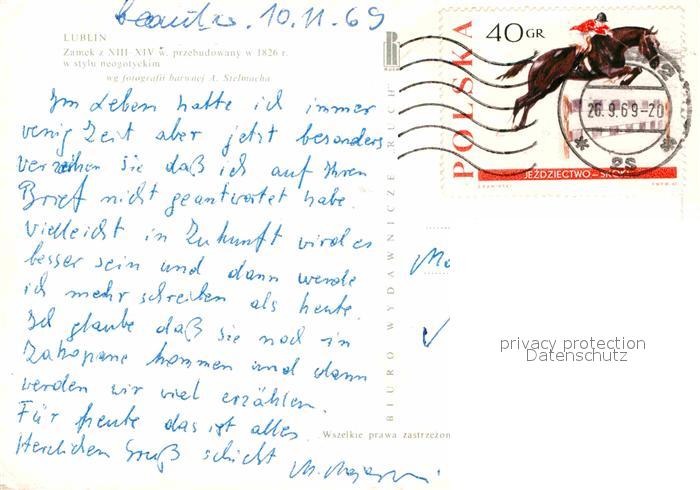 10.11.69
LUBLIN
Zamek z XIII-XIV w. przebudowany w 1826 r.
w stylu neogotyckim
wg fotografii barwnej A. Stelmacha
Im Leben hatte ich immer
wenig Zeit aber jetzt besonders
verzeihen sie daß ich auf Ihren
Brief nicht geantwortet habe.
Vielleicht in Zukunft wird es
besser sein und dann werde
ich mehr schreiben als heute.
Ich glaube daß sie noch in
Zakopane kommen und dann
werden wir viel erzählen.
Für heute das ist alles
Herzlichen Gruß schickt
BIURO WYDAWNICZE „RUCH"
Wszelkie prawa zastrzeżon
POLSKA
40 GR
26.9.69-20
2S
JEŹDZIECTWO-SKOKI
privacy protection
Datenschutz